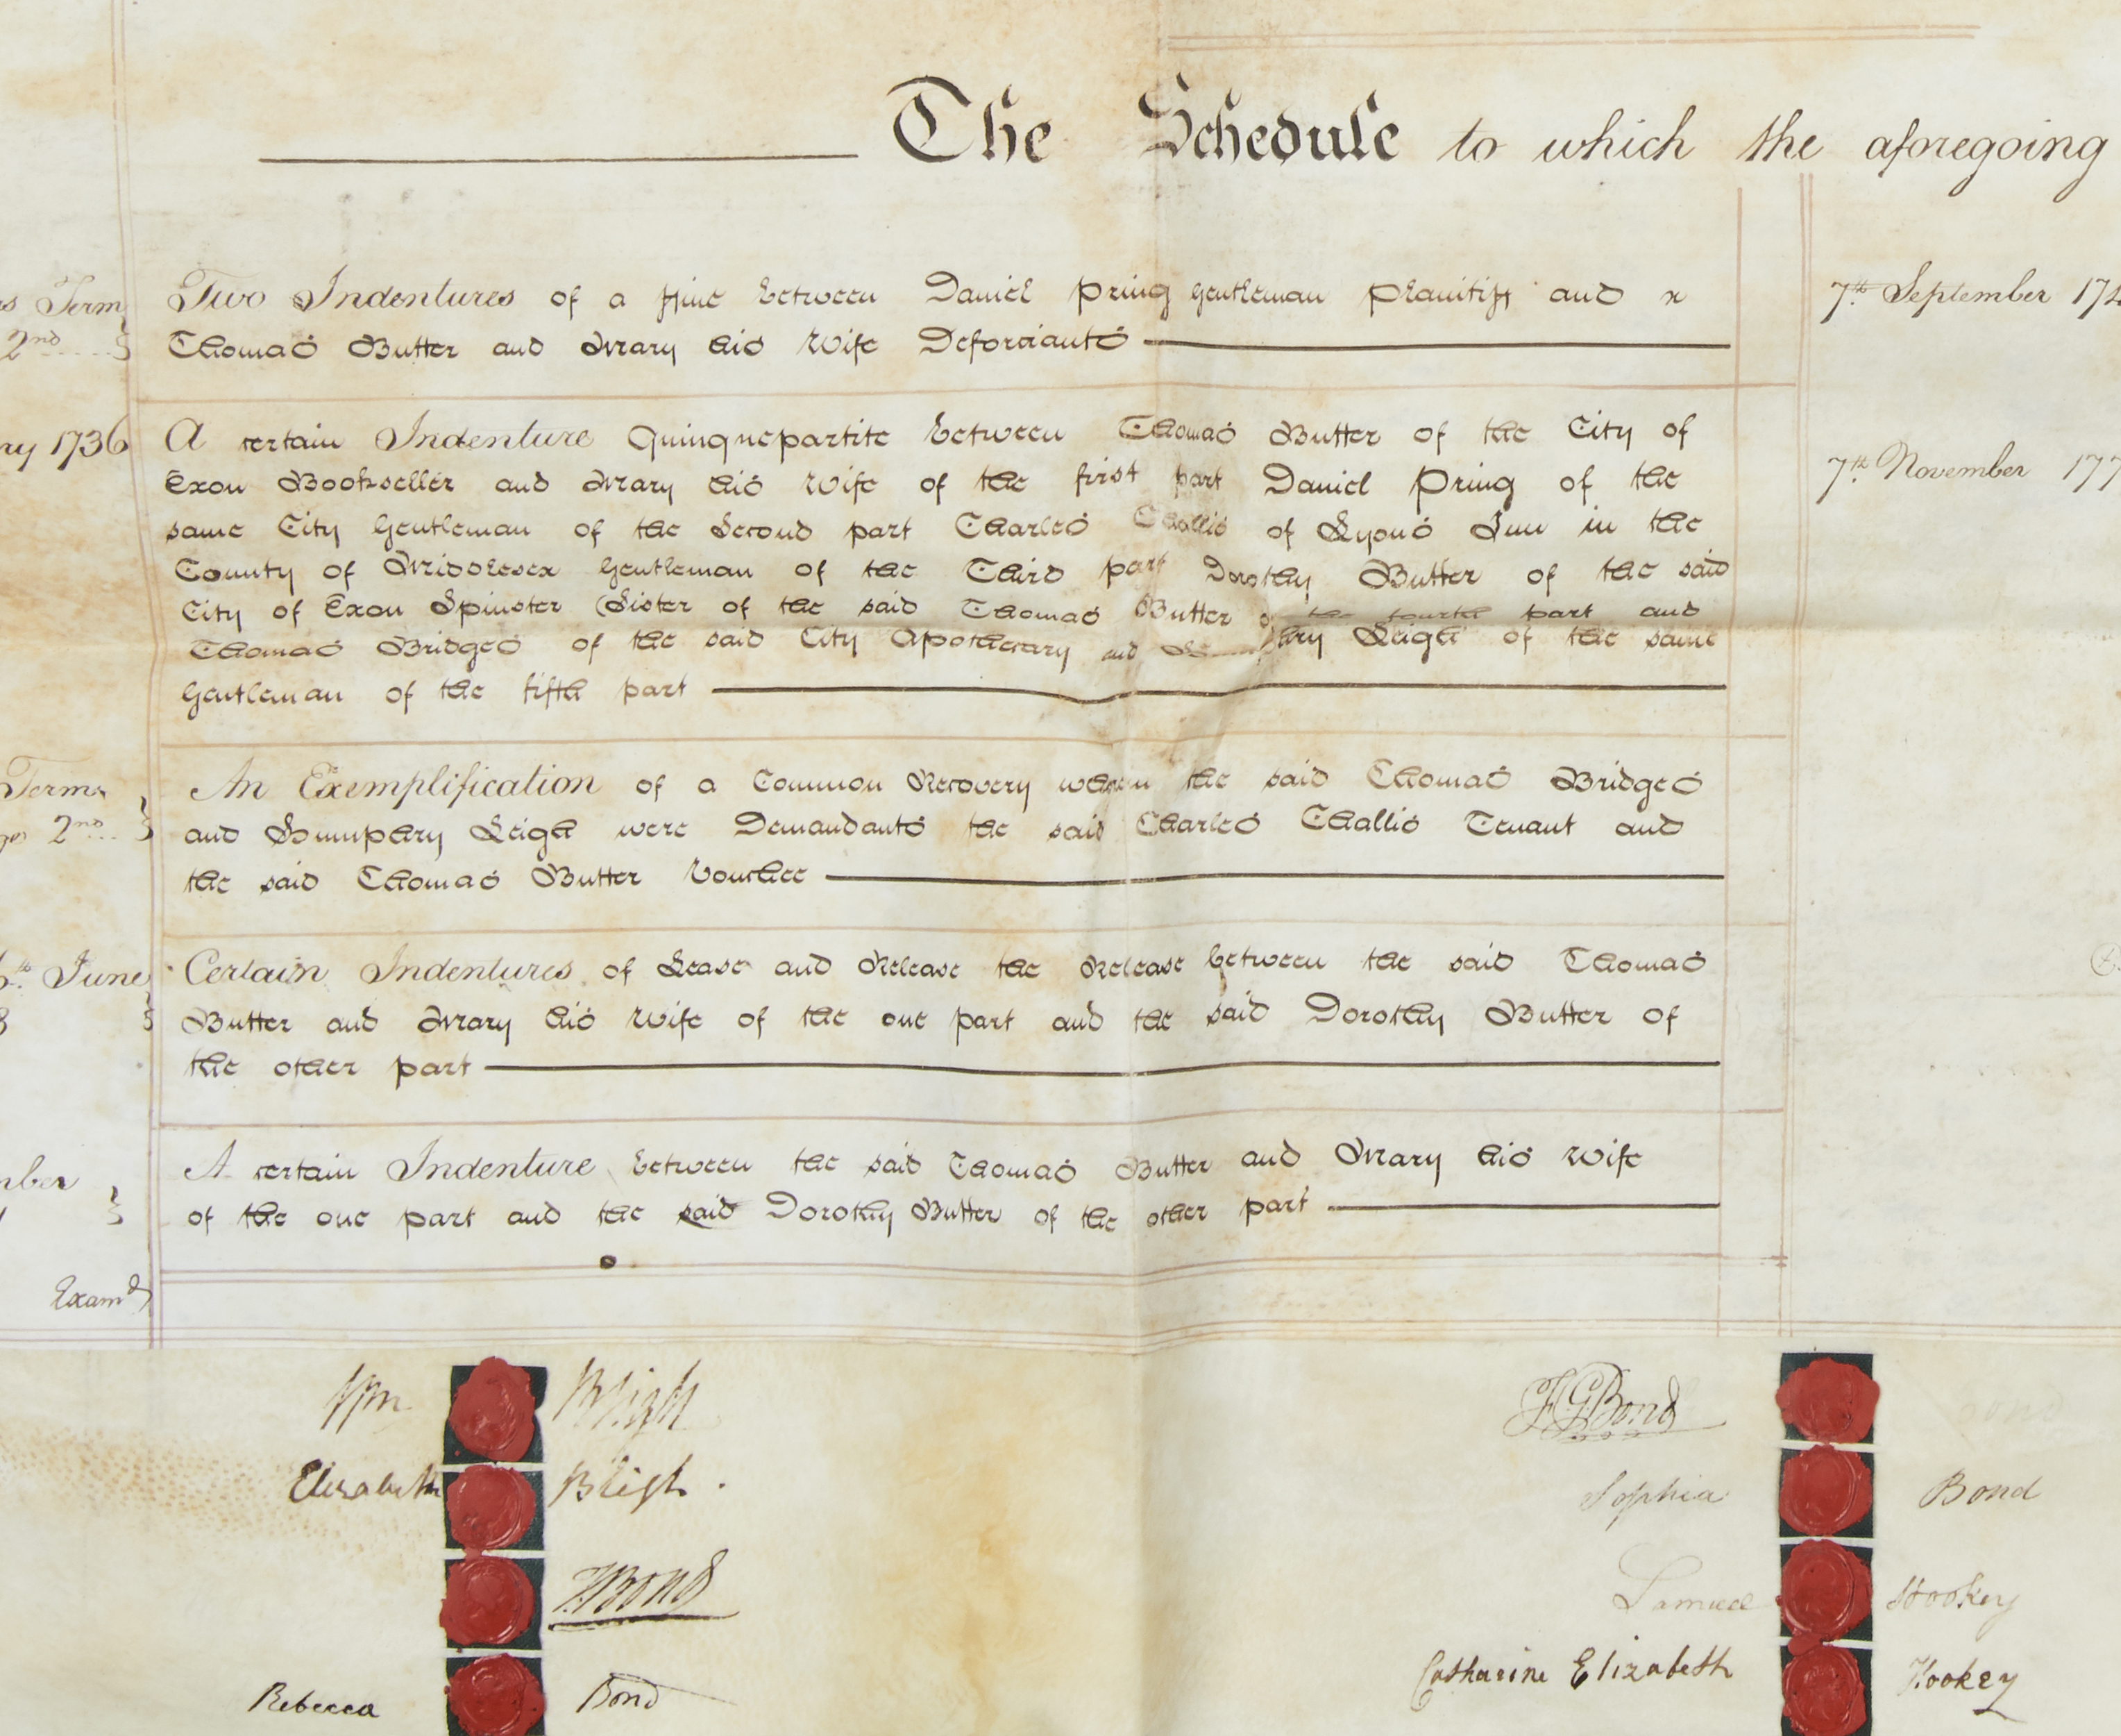 The Schedule to which the aforegoing
s Term
2nd
Two Indentures of a Fine between Daniel Pring Gentleman Plaintiff and x
Thomas Butter and Mary his Wife Deforciants
ry 1736
A certain Indenture Quinquepartite between Thomas Butter of the City of
Exon Bookseller and Mary his Wife of the first part Daniel Pring of the
same City Gentleman of the Second part Charles Challis of Lyons Inn in the
County of Middlesex Gentleman of the Third part Dorothy Butter of the said
City of Exon Spinster (Sister of the said Thomas Butter of the fourth part and
Thomas Bridges of the said City Apothecary and ary Leigh of the same
Gentleman of the fifth part
Terms
2nd
An Exemplification of a Common Recovery wherein the said Thomas Bridges
and Humphry Leigh were Demandants the said Charles Challis Tenant and
the said Thomas Butter Vouchee
th June
Certain Indentures of Lease and Release the Release between the said Thomas
Butter and Mary his Wife of the one part and the said Dorothy Butter of
the other part
mber
A certain Indenture between the said Thomas Butter and Mary his Wife
of the one part and the said Dorothy Butter of the other part
Examd
7th September 174
7th November 177
Wm Bligh
Elizabeth Bligh.
F Bond
Rebecca Bond
F G Bond
Sophia Bond
Samuel Hookey
Catharine Elizabeth Hookey